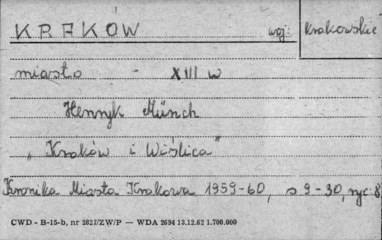 KRAKÓW woj: krakowskie
miasto - XIII w
Henryk Münch
"Kraków i Wiślica"
Kronika Miasta Krakowa 1959-60, s 9-30, ryc. 8
CWD - B-15-b, nr 2827/ZW/P — WDA 2694 13.12.62 1.700.000